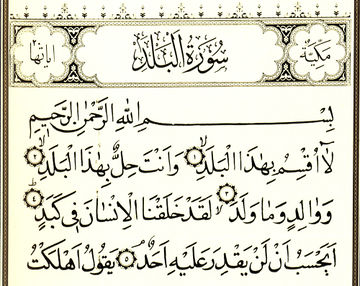 مكية سورة البلد آياتها
بِسْمِ اللهِ الرَّحْمٰنِ الرَّحِيمِ
لَا أُقْسِمُ بِهٰذَا الْبَلَدِ ١ وَاَنْتَ حِلٌّ بِهٰذَا الْبَلَدِ ٢
وَوَالِدٍ وَمَا وَلَدَ ٣ لَقَدْ خَلَقْنَا الْاِنْسَانَ فِي كَبَدٍ ٤
اَيَحْسَبُ اَنْ لَنْ يَقْدِرَ عَلَيْهِ اَحَدٌ ٥ يَقُولُ اَهْلَكْتُ